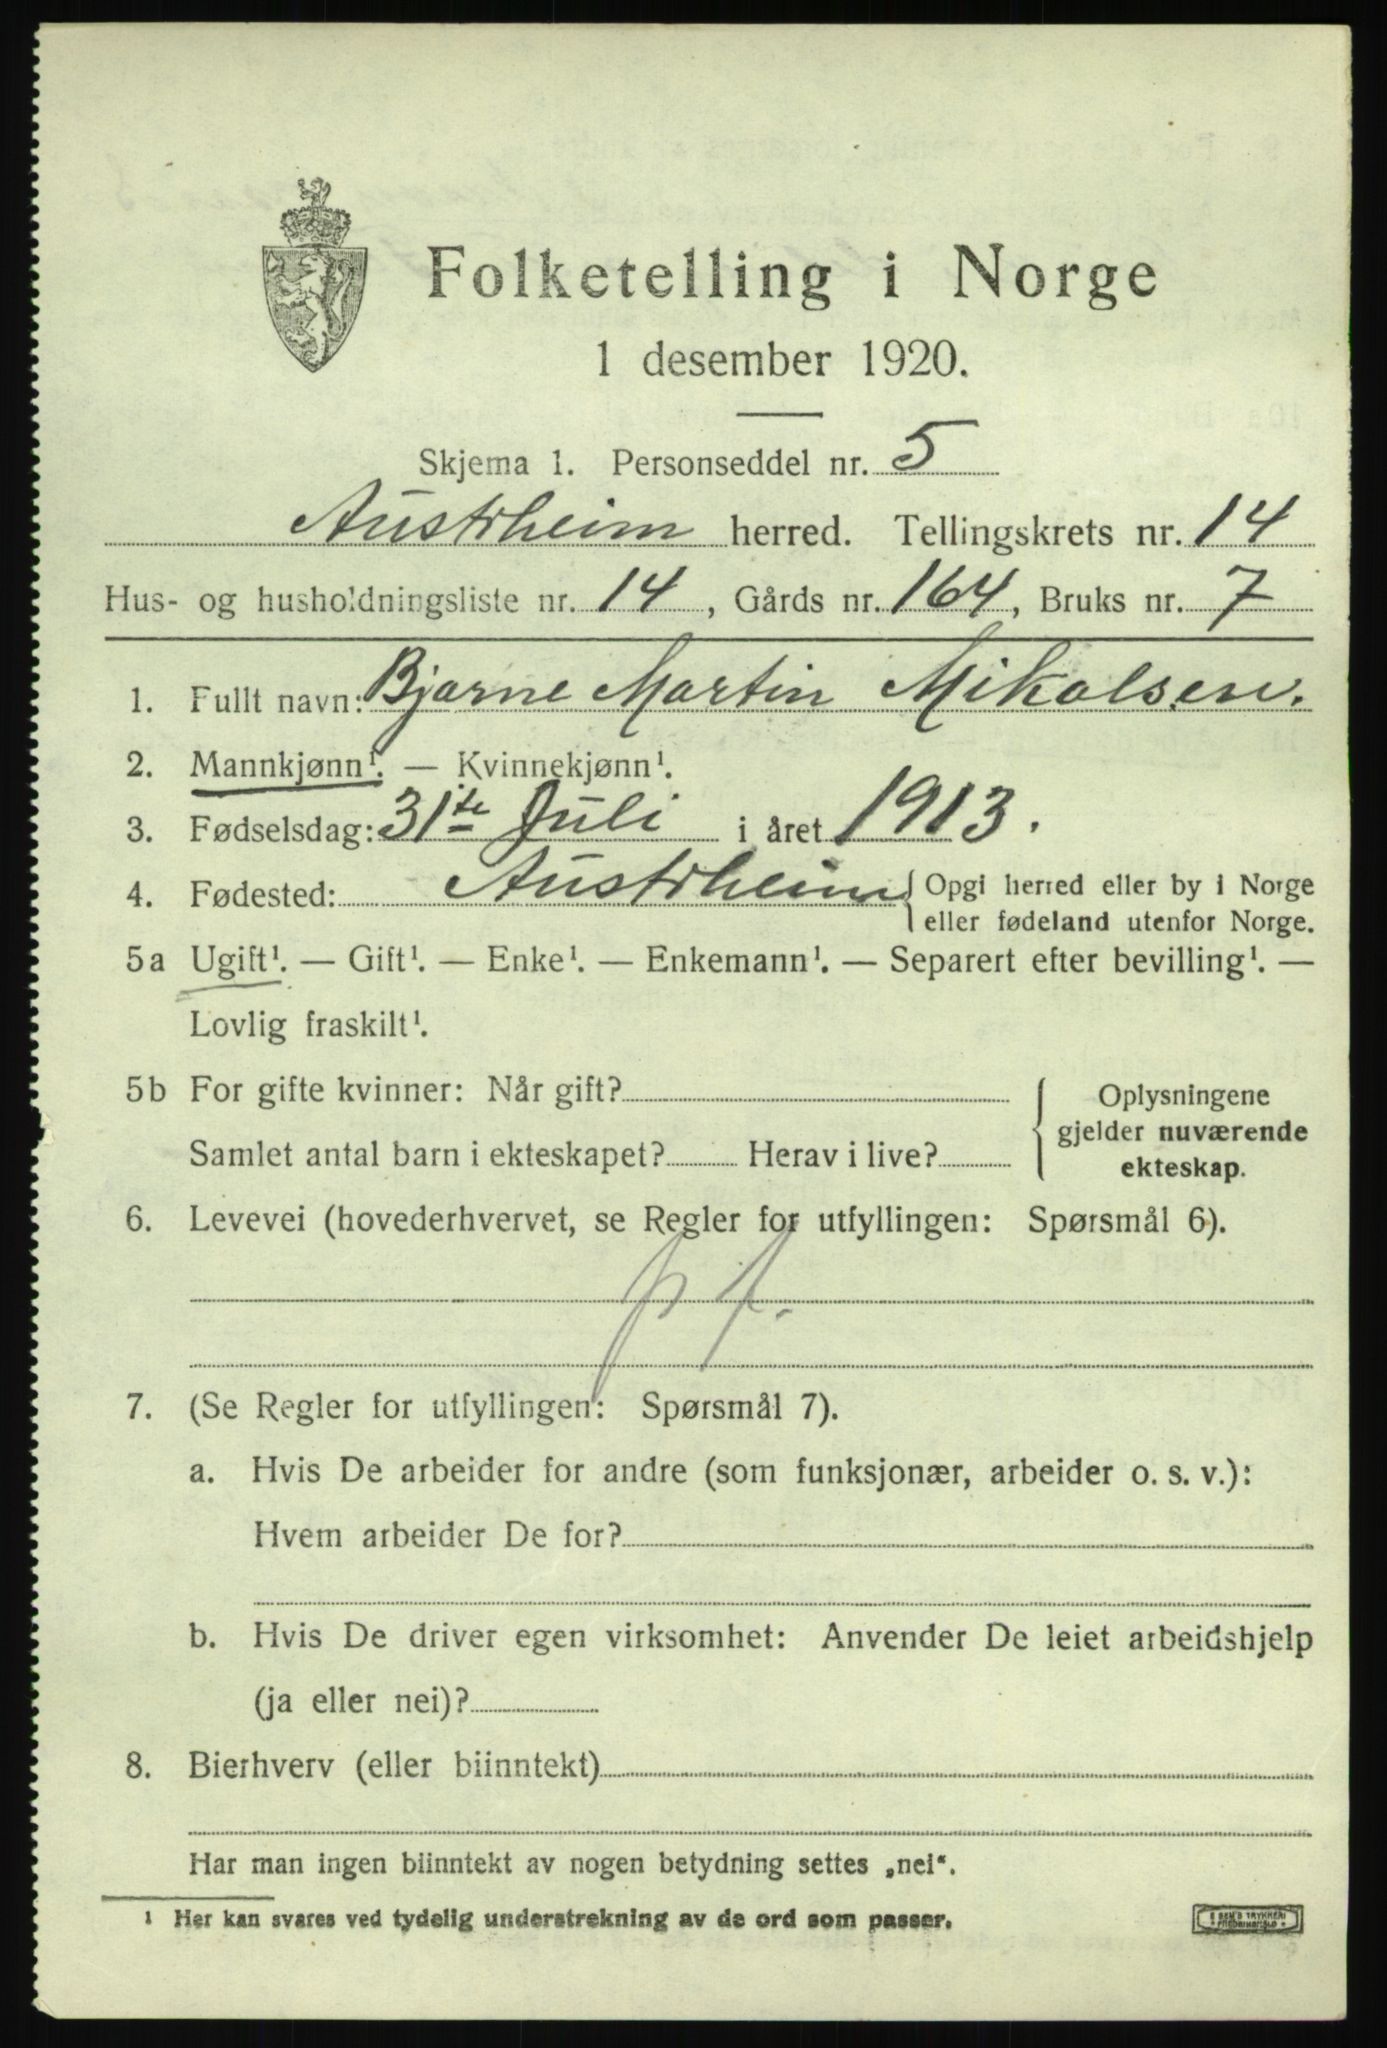 Folketelling i Norge
1 desember 1920.
Skjema 1. Personseddel nr. 5
Austrheim herred. Tellingskrets nr. 14
Hus- og husholdningsliste nr. 14, Gårds nr. 164, Bruks nr. 7
1. Fullt navn: Bjarne Martin Mikalsen.
2. Mannkjønn¹. — Kvinnekjønn¹.
3. Fødselsdag: 31te Juli i året 1913.
4. Fødested: Austrheim { Opgi herred eller by i Norge
eller fødeland utenfor Norge.
5a Ugift¹. — Gift¹. — Enke¹. — Enkemann¹. — Separert efter bevilling¹. —
Lovlig fraskilt¹.
5b For gifte kvinner: Når gift?
Samlet antal barn i ekteskapet? Herav i live?
{ Oplysningene
gjelder nuværende
ekteskap.
6. Levevei (hovederhvervet, se Regler for utfyllingen: Spørsmål 6).
7. (Se Regler for utfyllingen: Spørsmål 7).
a. Hvis De arbeider for andre (som funksjonær, arbeider o. s. v.):
Hvem arbeider De for?
b. Hvis De driver egen virksomhet: Anvender De leiet arbeidshjelp
(ja eller nei)?
8. Bierhverv (eller biinntekt)
Har man ingen biinntekt av nogen betydning settes „nei“.
¹ Her kan svares ved tydelig understrekning av de ord som passer.